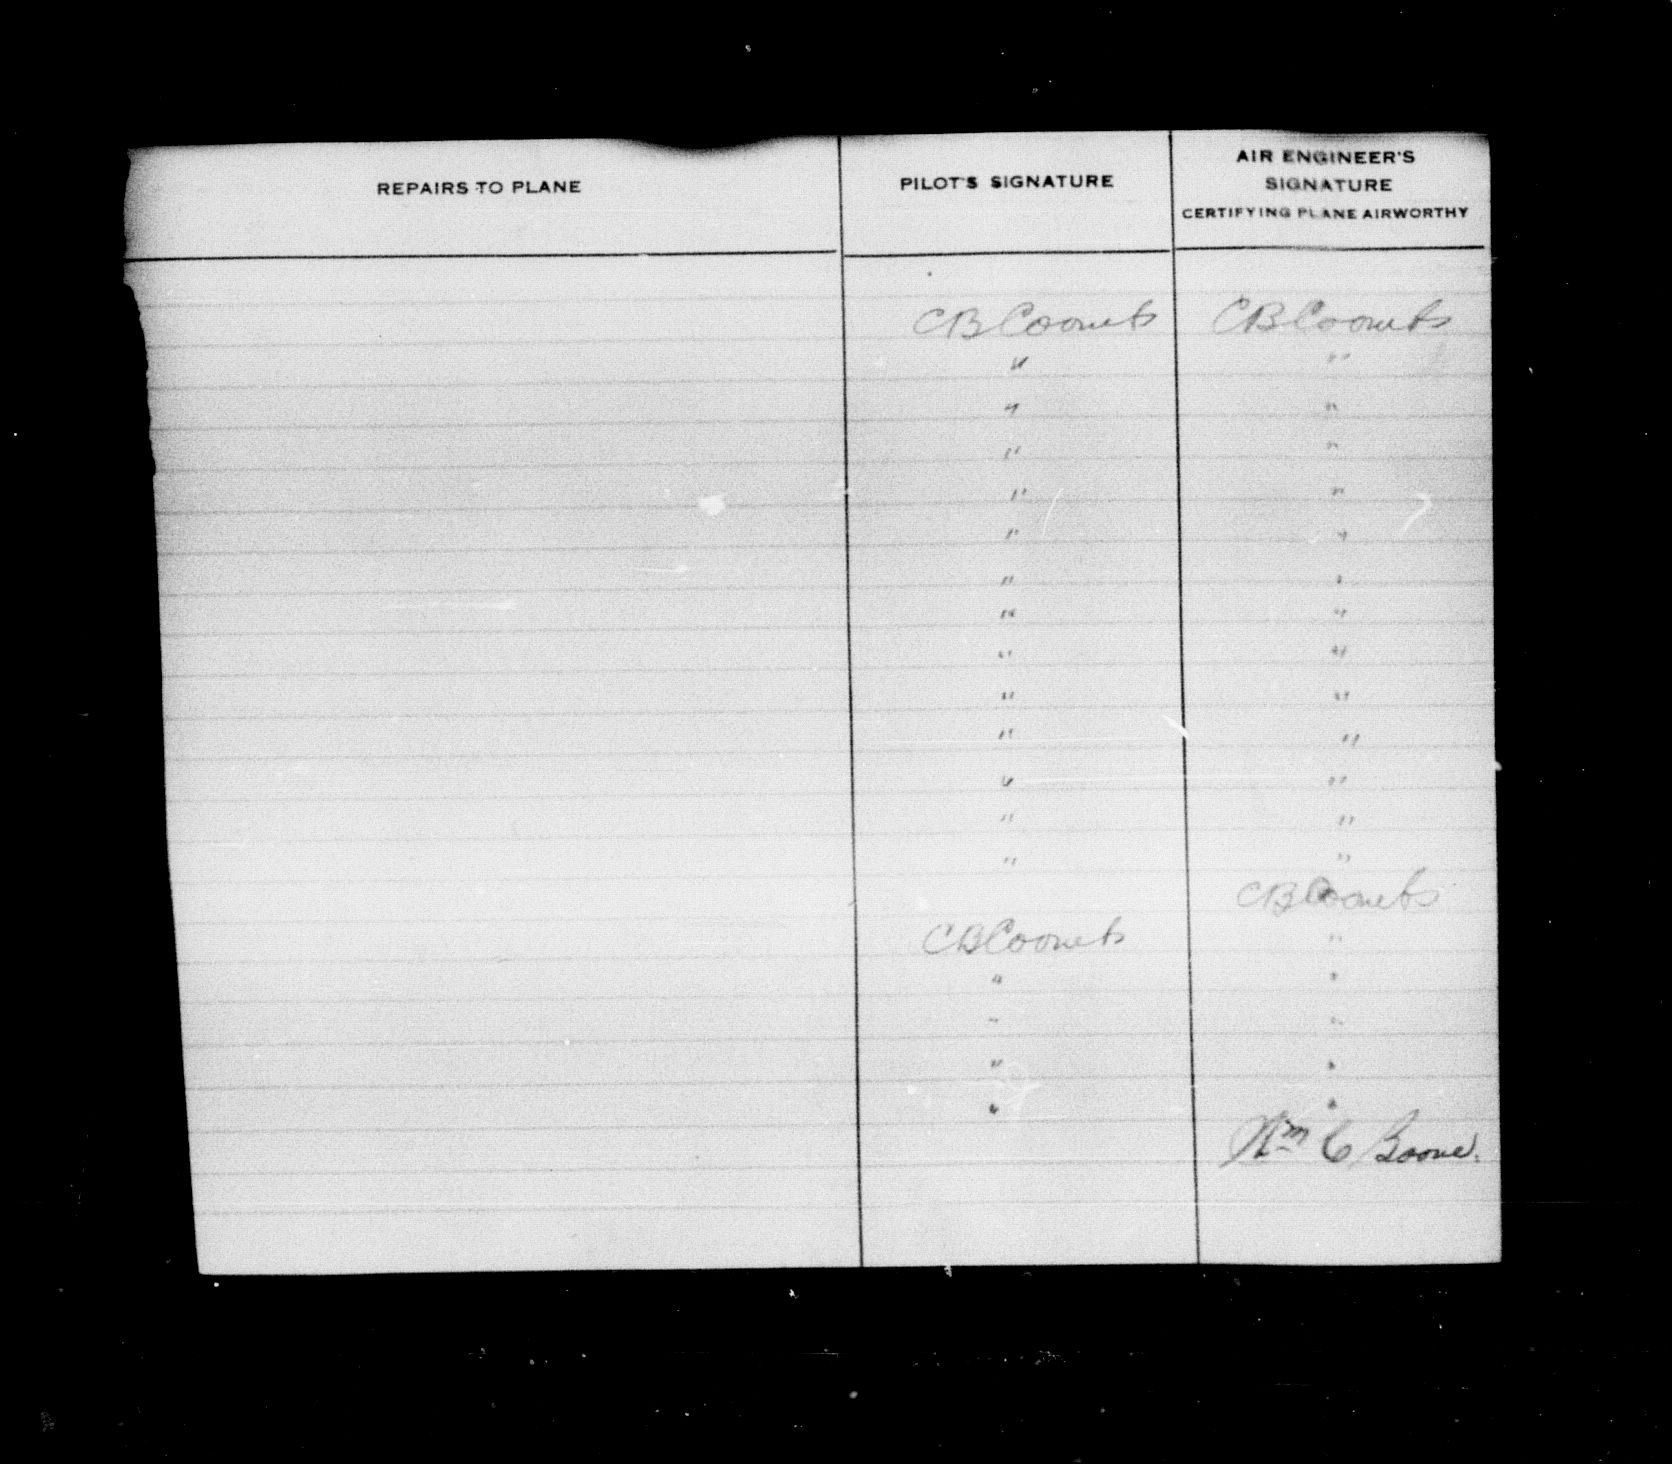 REPAIRS TO PLANE
PILOT'S SIGNATURE
AIR ENGINEER'S
SIGNATURE
CERTIFYING PLANE AIRWORTHY
CB Coombs CB Coombs
" "
" "
" "
" "
" "
" "
" "
" "
" "
" "
" "
" "
" "
CB Coombs
CB Coombs "
" "
" "
" "
" "
Wm C Boone.